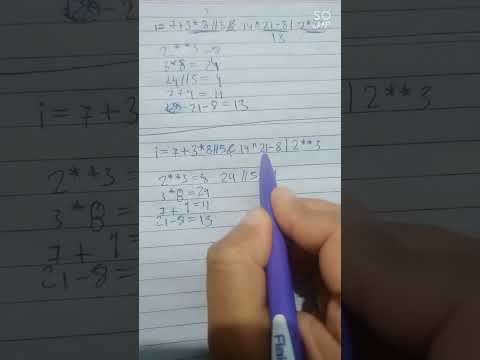 SO
i = 7+3*8//5& 14^21-8|2**3
13
2**3=8
3*8=24
24//5=4
7+4=11
21-8=13
i=7+3*8//5& 14^21-8|2**3
2**3=8 24//5
3*8=24
7+4=11
21-8=13
|2**3
2**3=
3*8=
7+
21-8=